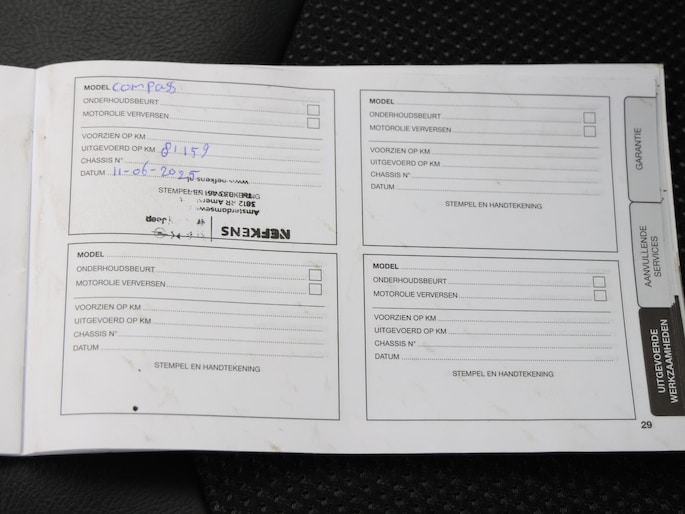 MODEL compass
ONDERHOUDSBEURT
MOTOROLIE VERVERSEN
VOORZIEN OP KM
UITGEVOERD OP KM 81159
CHASSIS N°
DATUM 11-06-2025
STEMPEL EN HANDTEKENING
www.nefkens
Amsterdamsew
Jeep
NEFKENS
MODEL
ONDERHOUDSBEURT
MOTOROLIE VERVERSEN
VOORZIEN OP KM
UITGEVOERD OP KM
CHASSIS N°
DATUM
STEMPEL EN HANDTEKENING
MODEL
ONDERHOUDSBEURT
MOTOROLIE VERVERSEN
VOORZIEN OP KM
UITGEVOERD OP KM
CHASSIS N°
DATUM
STEMPEL EN HANDTEKENING
MODEL
ONDERHOUDSBEURT
MOTOROLIE VERVERSEN
VOORZIEN OP KM
UITGEVOERD OP KM
CHASSIS N°
DATUM
STEMPEL EN HANDTEKENING
GARANTIE
AANVULLENDE
SERVICES
UITGEVOERDE
WERKZAAMHEDEN
29